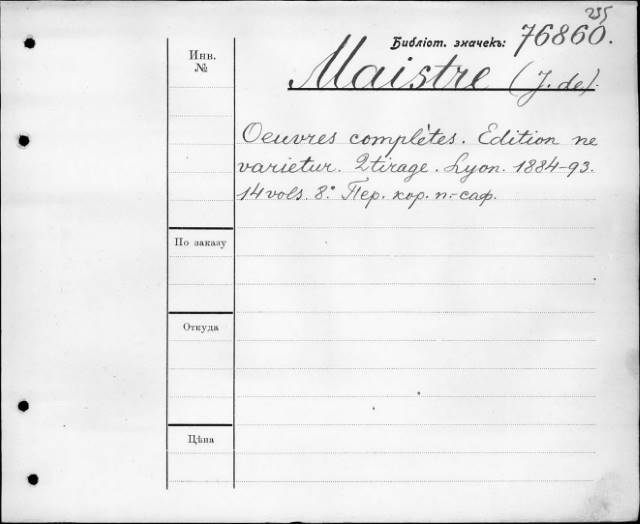 255
Библіот. значекъ: 76860.
Инв.
№
Maistre (J. de).
Oeuvres complètes. Edition ne
varietur. 2 tirage. Lyon. 1884-93.
14 vols. 8.° Пер. кор. п.-саф.
По заказу
Откуда
Цѣна